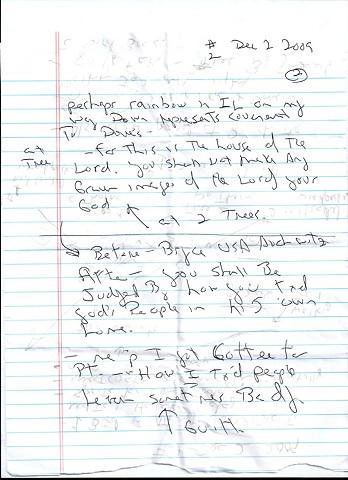 # 2 Dec 2 2009
2
perhaps rainbow in IL on my
way Down represents covenant
To Dave's
at Tree
- For This is The house of The
Lord. You shall not make Any
Graven images of the Lord your
God
at 2 Trees.
Before - Bryce USA
After - you shall Be
Judged By how you
God's People in his own
Home.
I got Coffee for
PT. - How I people
sometimes Badly
Guilt.